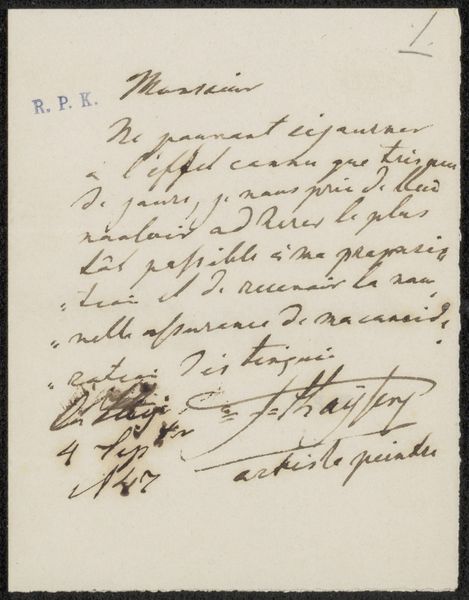 1.
R. P. K.
Monsieur
Ne pouvant séjourner
à l'effet connu que très peu
de jours, je vous prie de bien
vouloir adherer le plus
tôt possible à ma proposi
" tion et de recevoir la nou "
" velle assurance de ma consid "
" ération distinguée
4 Sept
1847
artiste peintre